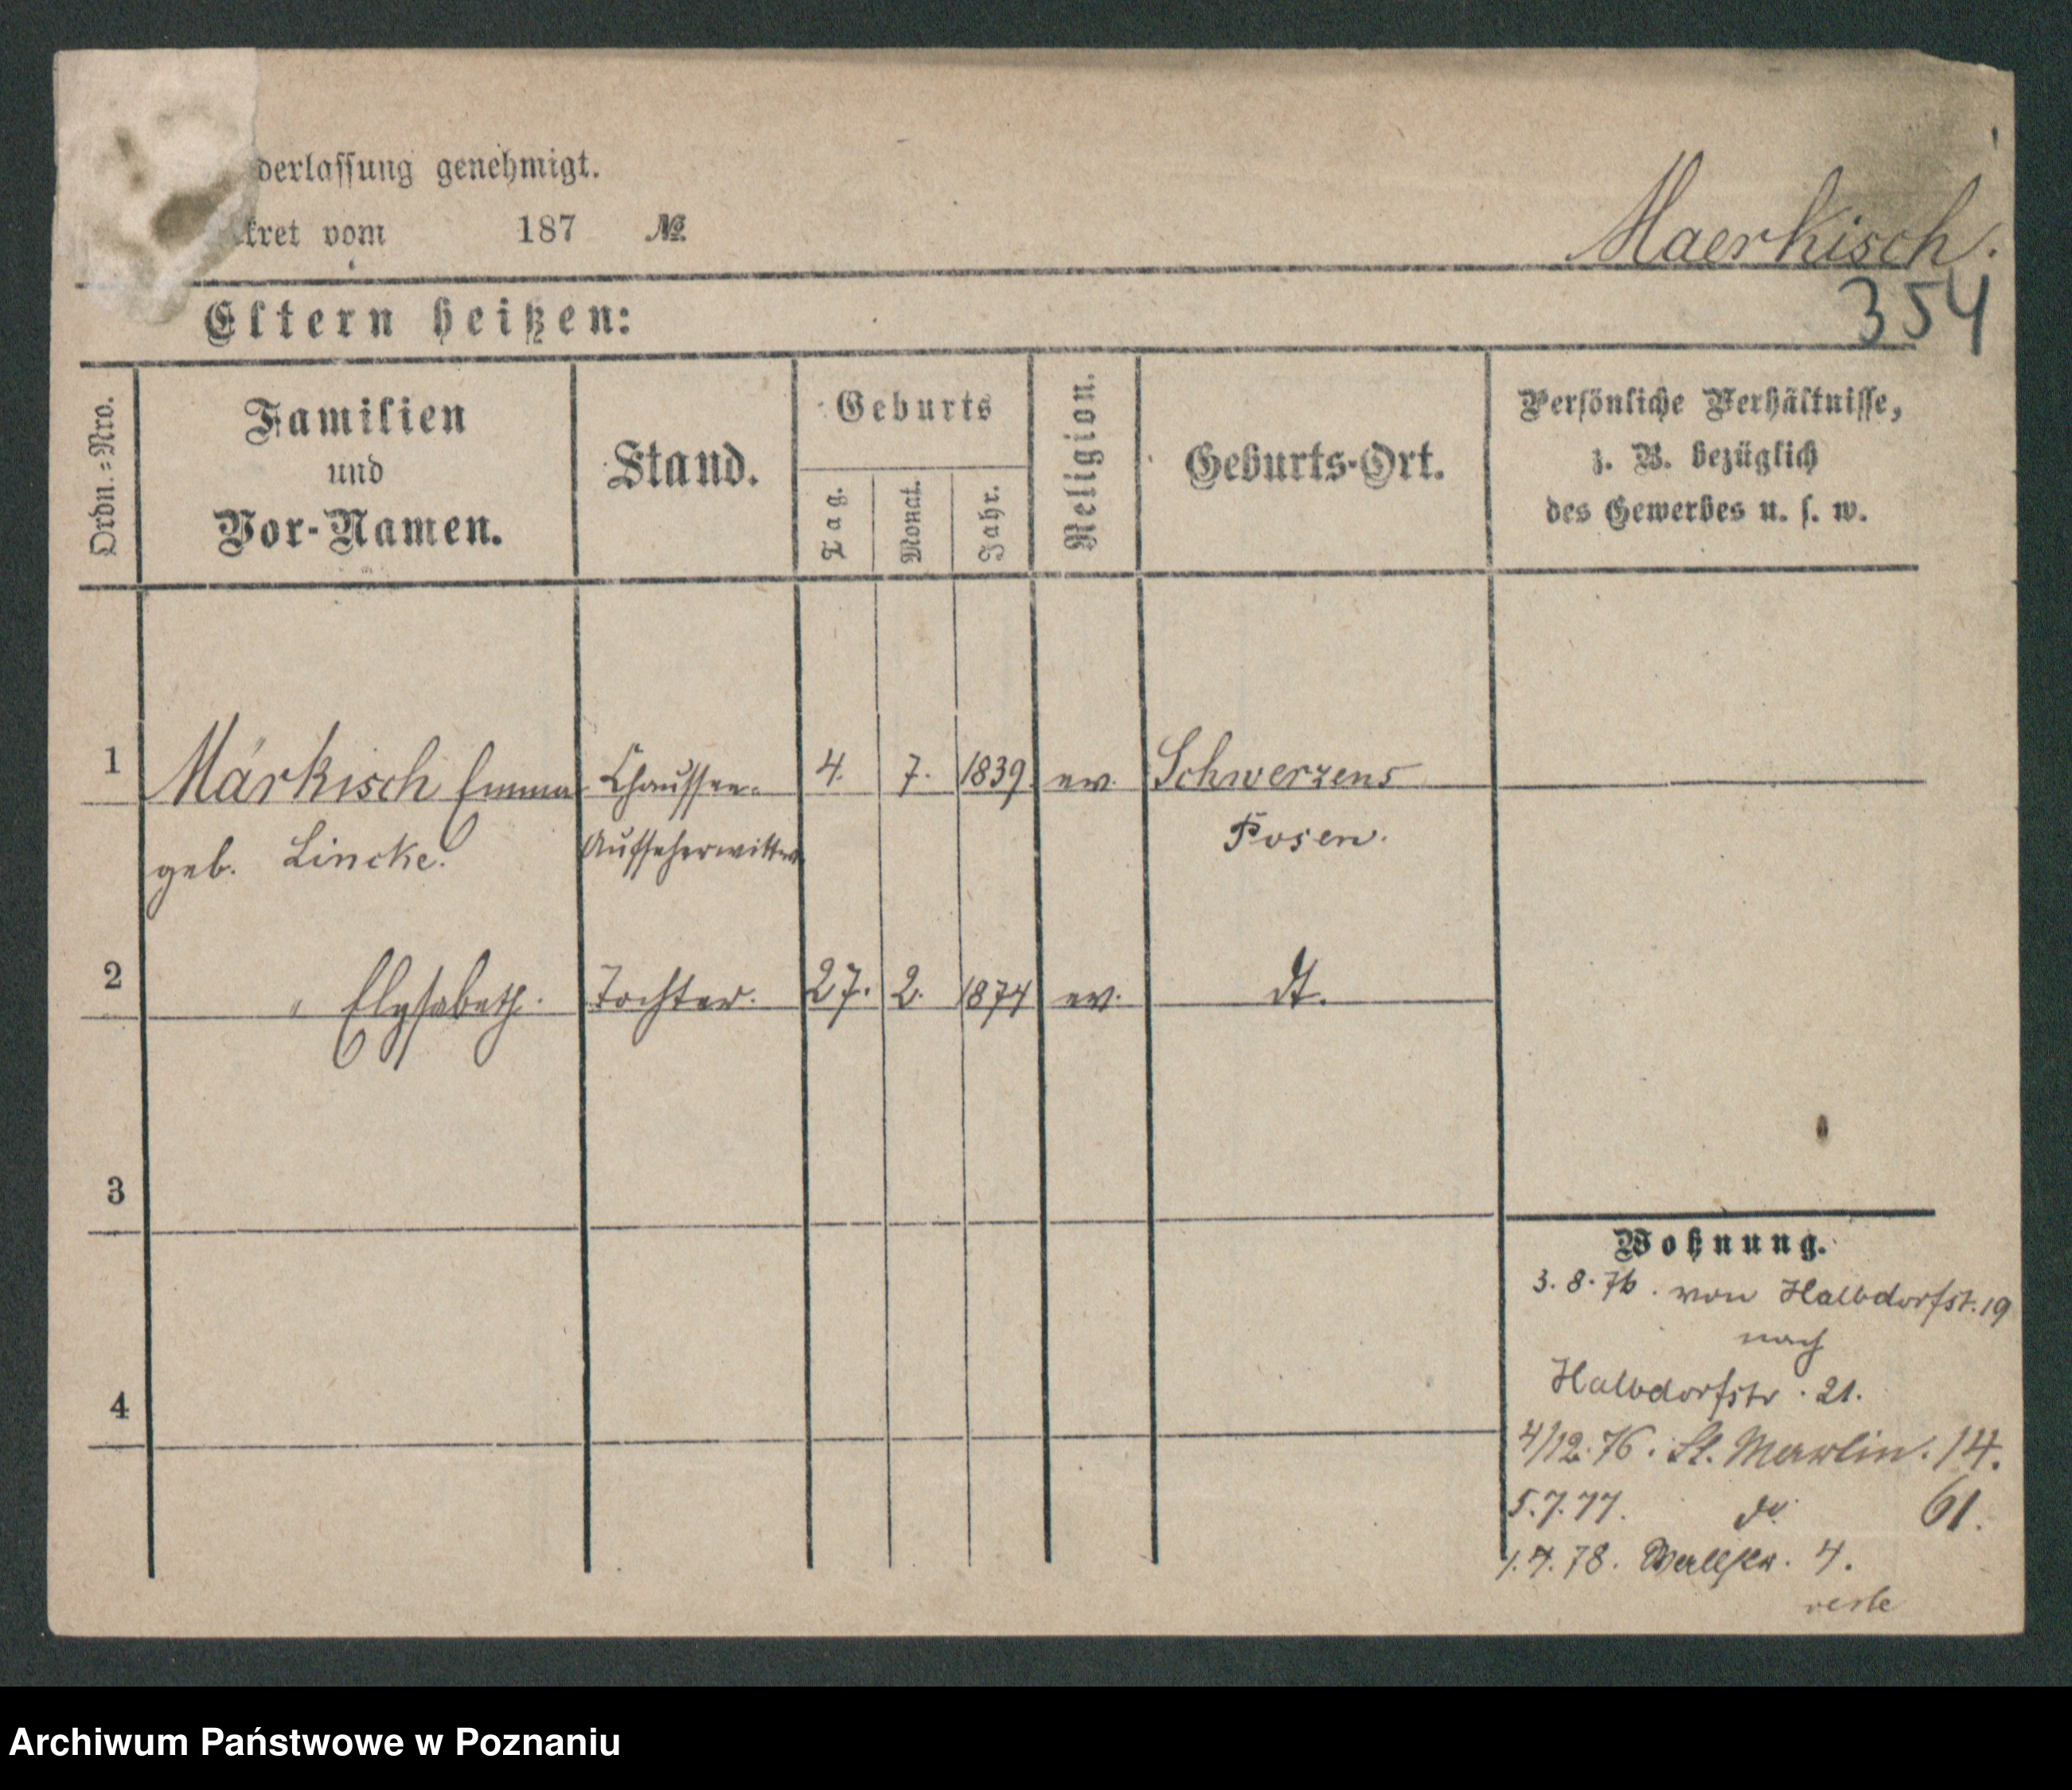 derlassung genehmigt.
kret vom 187 №
Maerkisch.
354
Eltern heißen:
Ordn.-Nro.
Familien
und
Vor-Namen.
Stand.
Geburts
Tag.
Monat.
Jahr.
Religion.
Geburts-Ort.
Persönliche Verhältnisse,
z. B. bezüglich
des Gewerbes u. s. w.
1 Märkisch Emma Chaussee- 4. 7. 1839 ev. Schwerzens
geb. Lincke. Aufseherwittwe Posen.
2 " Elysabeth. Tochter. 27. 2. 1874 ev. dt.
3
4
Wohnung.
3. 8. 76. von Halbdorfst. 19
nach
Halbdorfstr. 21.
4/12. 76. St. Martin. 14.
5. 7. 77. do 61.
1. 7. 78. Wallstr. 4.
Archiwum Państwowe w Poznaniu